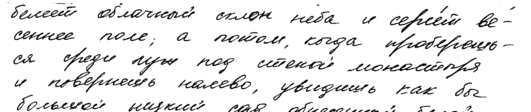 белеет облачный склон неба и сереет ве-
сеннее поле; а потом, когда проберешь-
ся среди луж под стеной монастыря
и повернешь налево, увидишь как бы
большой низкий сад, обнесенный белой